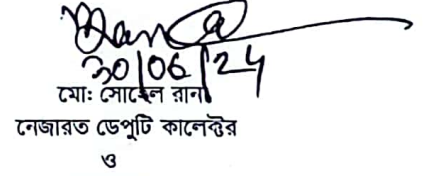 30/06/24
মো: সোহেল রানা
নেজারত ডেপুটি কালেক্টর
ও